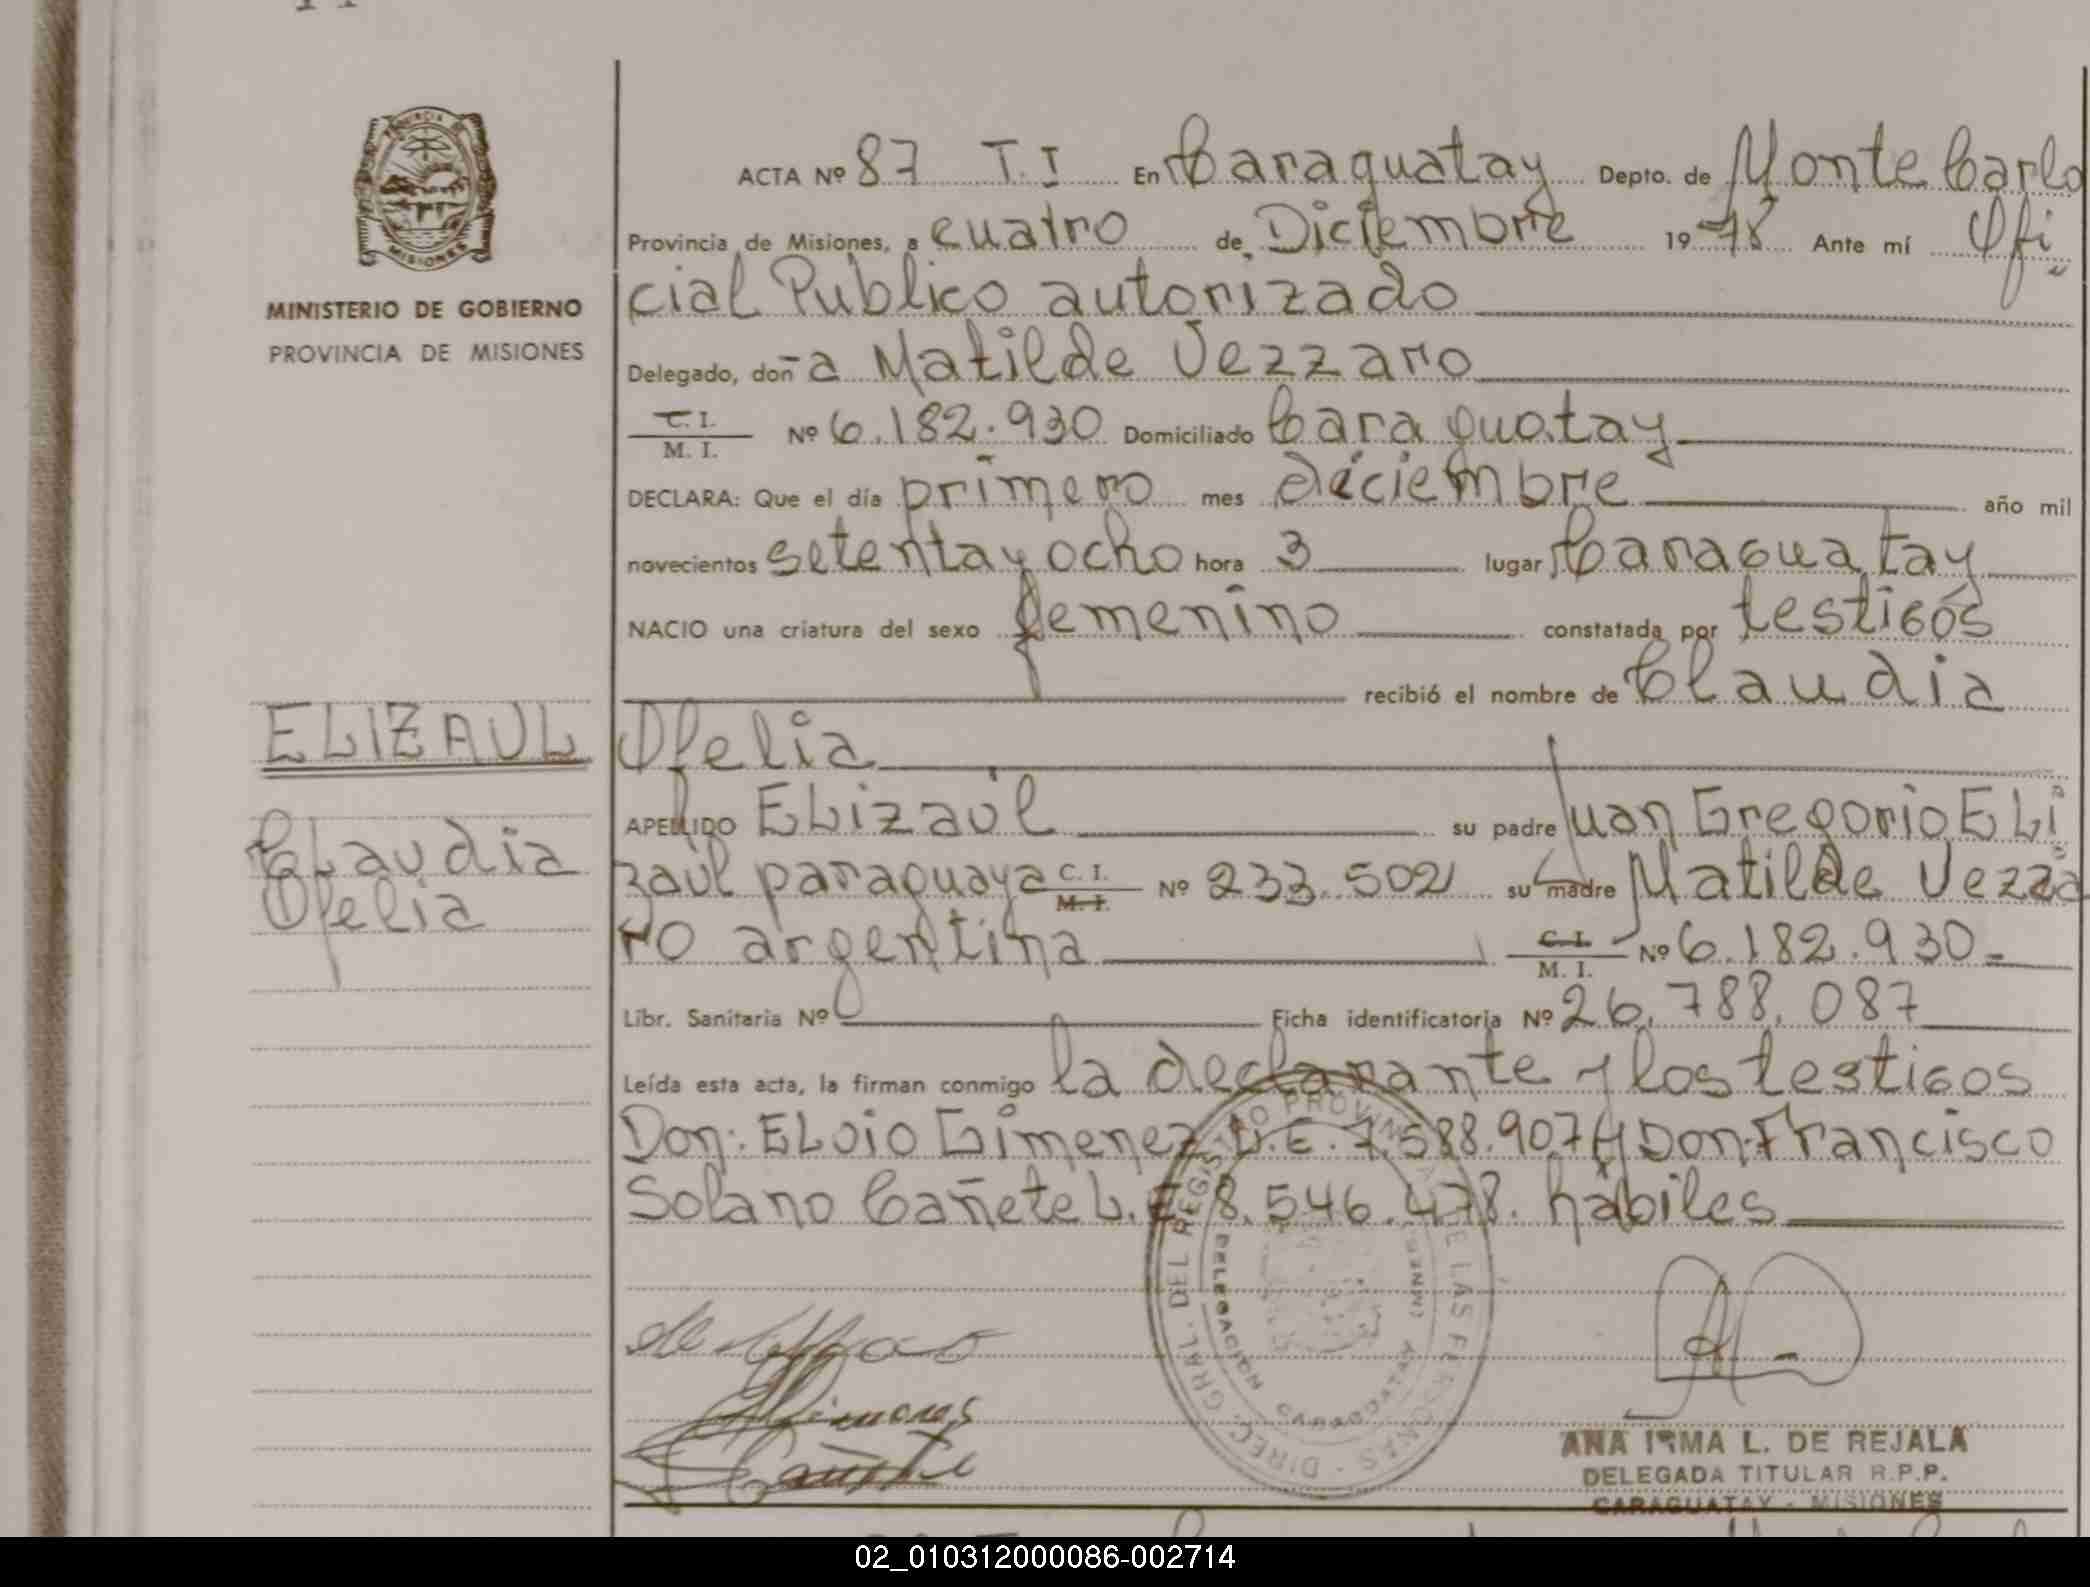 MINISTERIO DE GOBIERNO
PROVINCIA DE MISIONES
ELIZAUL
Claudia
Ofelia
ACTA Nº 87 T.I En Caraguatay Depto. de Monte Carlo
Provincia de Misiones, a cuatro de Diciembre 1978 Ante mí Ofi
cial Publico autorizado
Delegado, doña Matilde Vezzaro
C. I.
M. I. Nº 6.182.930 Domiciliado Caraguatay
DECLARA: Que el día primero mes diciembre año mil
novecientos setenta y ocho hora 3 lugar Caraguatay
NACIO una criatura del sexo femenino constatada por testigos
recibió el nombre de Claudia
Ofelia
APELLIDO Elizaúl su padre Juan Gregorio Eli
zaúl paraguaya C. I. M. I. Nº 233.502 su madre Matilde Vezza
ro argentina C. I. M. I. Nº 6.182.930
Libr. Sanitaria Nº Ficha identificatoria Nº 26.788.087
Leída esta acta, la firman conmigo la declarante y los testigos
Don: Elvio Gimenez L.E. 7.588.907 y Don: Francisco
Solano Cañete L.E 8.546.478. hábiles
DIREC. GRAL. DEL REGISTRO PROVINCIAL DE LAS PERSONAS
DELEGACION CARAGUATAY
ANA IRMA L. DE REJALA
DELEGADA TITULAR R.P.P.
CARAGUATAY - MISIONES
02_010312000086-002714